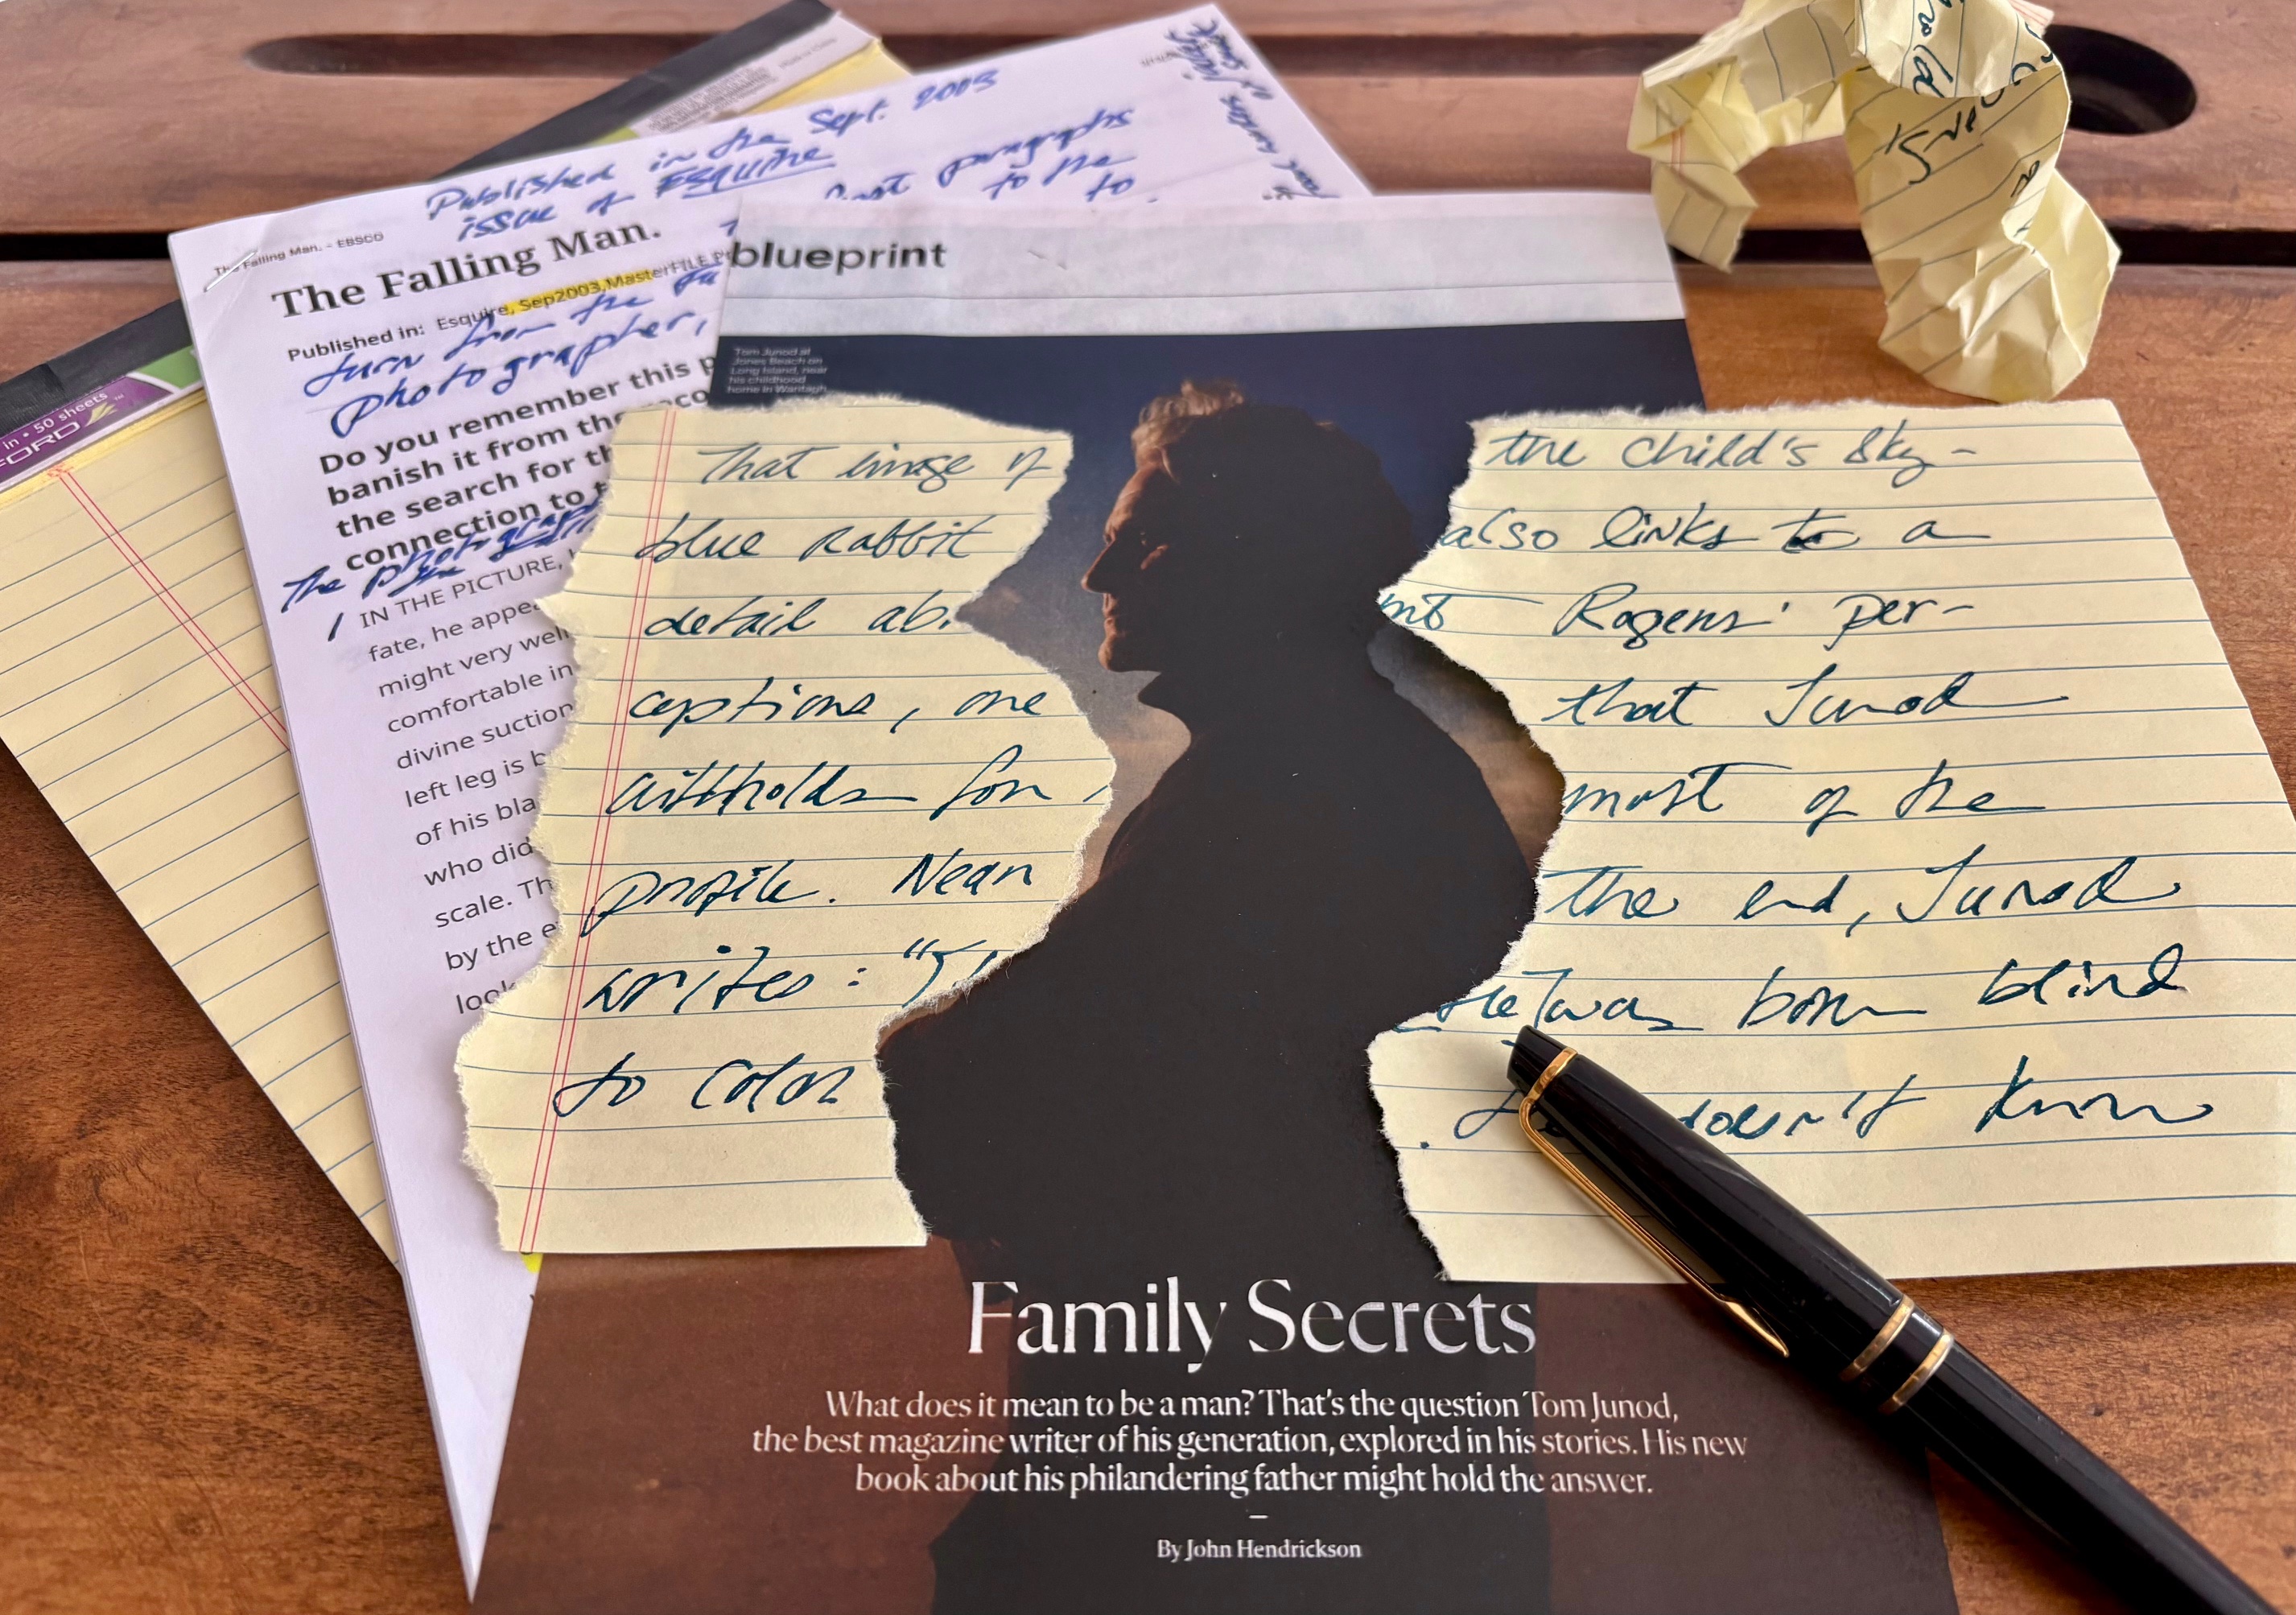 Published in the Sept. 2003
issue of Esquire
last paragraphs
to the
to
The Falling Man. - EBSCO
The Falling Man.
Published in: Esquire, Sep2003, MasterFILE
turn from the
photographer,
Do you remember this p
banish it from the reco
the search for th
connection to t
the photographer
1 IN THE PICTURE,
fate, he appe
might very well
comfortable in
divine suction
left leg is b
of his bla
who did
scale. Th
by the e
look
in • 50 sheets
FORD
blueprint
Tom Junod at
Jones Beach on
Long Island, near
his childhood
home in Wantagh
That image of
blue rabbit
detail ab
captions, one
withholds for
profile. Near
writes: "I
to color
the child's sky-
also links to a
nt Rogers' per-
that Junod
most of the
the end, Junod
he was born blind
doesn't know
Family Secrets
What does it mean to be a man? That's the question Tom Junod,
the best magazine writer of his generation, explored in his stories. His new
book about his philandering father might hold the answer.
By John Hendrickson